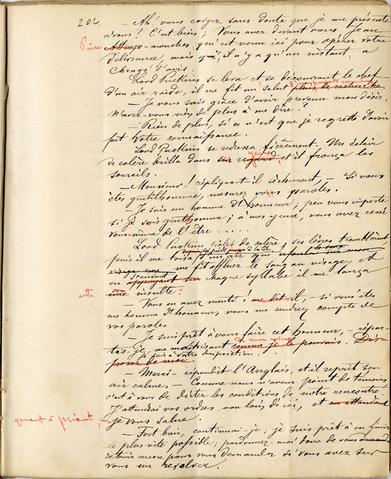 202
— Ah! vous croyez sans doute que je me présente
à vous? C'est bien; Vous avez devant vous Jean
manches, qui est venu ici pour opérer votre
délivrance, mais qui, il n'y a qu'un instant a
changé d'avis.
Lord Puckins se leva et se découvrant le chef
d'un air raide, il me fit un salut
— Je vous sais grâce d'avoir prévenu mon désir.
N'avez-vous rien de plus à me dire?
— Rien de plus, si ce n'est que je regrette d'avoir
fait votre connaissance.
Lord Puckins se redressa fièrement. Un éclair
de colère brilla dans ses et il fronça les
sourcils.
— Monsieur! répliqua-t-il sèchement, — Si vous
êtes gentilhomme, mesurez vos paroles.
— Je suis un homme d'honneur; peu vous importe
si je suis gentilhomme; à mes yeux, vous avez cessé
vous-même de l'être ....
Lord Puckins de colère, ses lèvres tremblèrent
puis il me toisa d'un air qui
me fit affluer le sang au visage, et
chaque syllabe il me lança
cette insulte.
— Vous en avez menti! me dit-il, — si vous êtes
un homme d'honneur, vous me rendrez compte de
vos paroles.
— Je suis prêt à vous faire cet honneur, — répar-
tis-je, me maîtrisant comme je le pouvais.
Je suis à votre disposition!
— Merci — répondit l'Anglais, et il reprit son
air calme, — Comme nous n'avons point de témoins
c'est à nous de dicter les conditions de notre rencontre
J'attendrai vos ordres, non loin d'ici, et
quant à présent
je vous salue.
— Fort bien, continuai-je; je suis prêt à en finir
le plus vite possible; pardonnez-moi donc de vous
retenir encore pour vous demander si vous avez sur
vous un revolver.